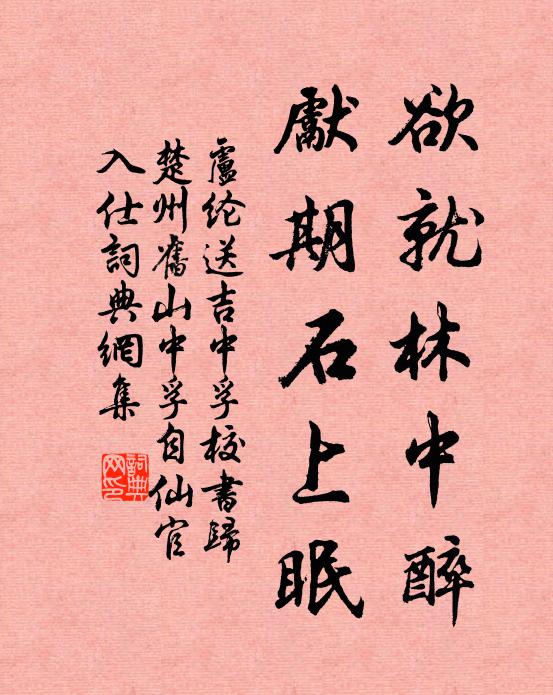 欲就林中醉
獻期石上眠
盧纶送吉中孚校書歸
楚州舊山中孚自仙官
入仕詞典網集
詞典
网印